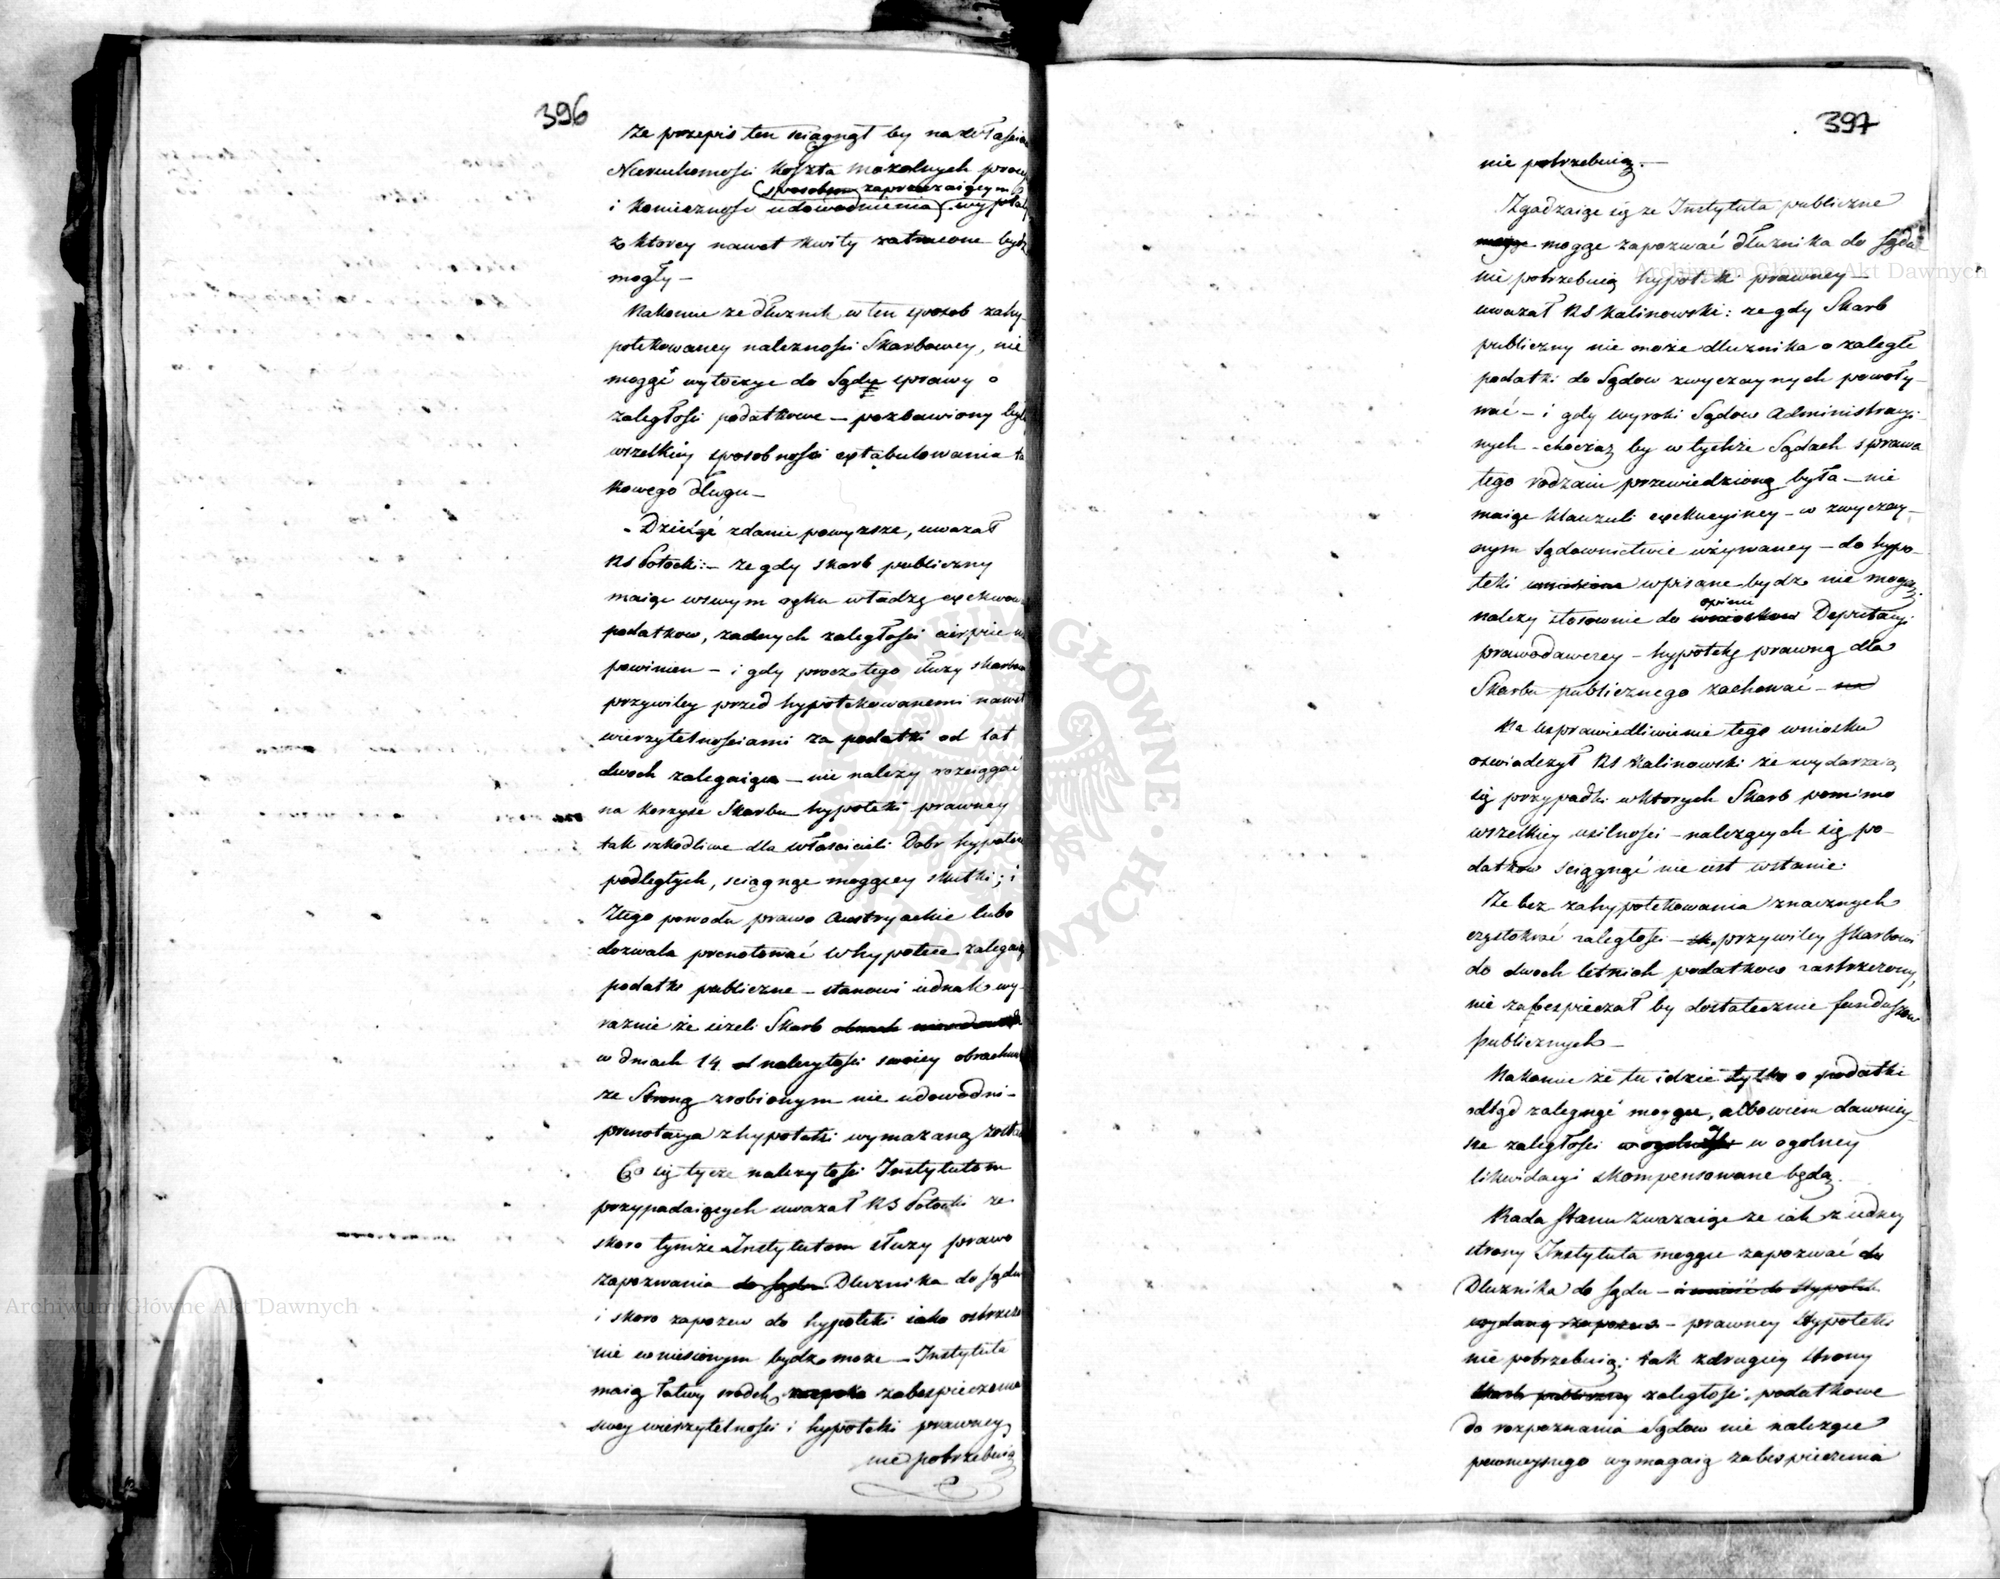 396
Ze przepis ten sciągnął by na właścic
Nieruchomosci koszta mozolnych procy
sposobem zaprzeczaiącym
i koniecznosc udowodnienia wypłaty
z ktorey nawet kwity zatracone bydz
mogły —
Nakoniec ze dłuznik w ten sposob zahy-
potekowaney naleznosci Skarbowey, nie
mogąc wytoczyc do Sądu sprawy o
zaległosci podatkowe — pozbawiony był
wszelkiey sposobnosci extabulowania ta
kowego długu —
Dzieląc zdanie powyzsze, uwazał
RS Potocki: — ze gdy skarb publiczny
maiąc w swym ręku władzę exekwow
podatkow, zadnych zaległosci cierpiec nie
powinien — i gdy procz tego służy skarbow
przywiley przed hypotekowanemi nawet
wierzytelnosciami za podatki od lat
dwoch zalegaiące — nie nalezy rozciągać
na korzyść Skarbu hypoteki prawney
tak szkodliwe dla włascicieli Dobr hypotece
podległych, sciągnąc mogącey skutki; i
Ztego powodu prawo Austryackie lubo
dozwala prenotować w hypotece zalegaią
podatki publiczne — stanowi iednak wy-
raznie że iezeli Skarb
w dniach 14 od nalezytosci swoiey obrachun
ze Stroną zrobionym nie udowodni —
prenotacya z hypoteki wymazaną zosta
Co się tycze nalezytosci Instytutom
przypadaiących uwazał RS Potocki ze
skoro tymże Instytutom służy prawo
zapozwania do Sądu Dłuznika do sądu
i skoro zapozew do hypoteki iako ostrzeze
nie wniesionym bydz może — Instytuta
maią łatwy srodek zabespieczenia
swey wierzytelnosci i hypoteki prawney
nie potrzebuią
397
nie potrzebuią. —
Zgadzaiąc się ze Instytuta publiczne
mogąc mogąc zapozwać dłuznika do Sądu
nie potrzebuią hypoteki prawney —
uwazał RS Kalinowski: ze gdy Skarb
publiczny nie może dłuznika o zaległe
podatki do Sądow zwyczaynych powoły-
wać — i gdy wyroki Sądow Administracyi-
nych — chociaz by w tychże Sądach sprawa
tego rodzaiu przewiedzioną była — nie
maiąc klauzuli exekucyiney — w zwyczay-
nym Sądownictwie używaney — do hypo-
teki wniesione wpisane bydz nie mogą,
opinii
nalezy stosownie do wniosków Deputacyi
prawodawczey — hypotekę prawną dla
Skarbu publicznego zachować — na
Na usprawiedliwienie tego wniosku
oswiadczył RS Kalinowski że wydarzaią
się przypadki w ktorych Skarb pomimo
wszelkiey usilnosci — nalezących się po-
datkow sciągnąć nie iest wstanie.
Ze bez zahypotekowania znacznych
częstokroć zaległosci — przywiley Skarbowi
do dwoch letnich podatkow zastrzezony,
nie zabespieczał by dostatecznie funduszow
publicznych —
Nakoniec że tu idzie tylko o podatki
odtąd zalegnąć mogące, albowiem dawniey-
sze zaległosci w ogolney
likwidacyi skompensowane będą.
Rada Stanu zwazaiąc ze iak z iedney
strony Instytuta mogące zapozwać do
Dłuznika do sądu — i wnieść do Hypoteki
wydany zapozew — prawney Hypoteki
nie potrzebuią; tak z drugiey strony
Skarb publiczny zaległosci podatkowe
do rozpoznania Sądow nie nalezące
pewnieyszego wymagaią zabespieczenia